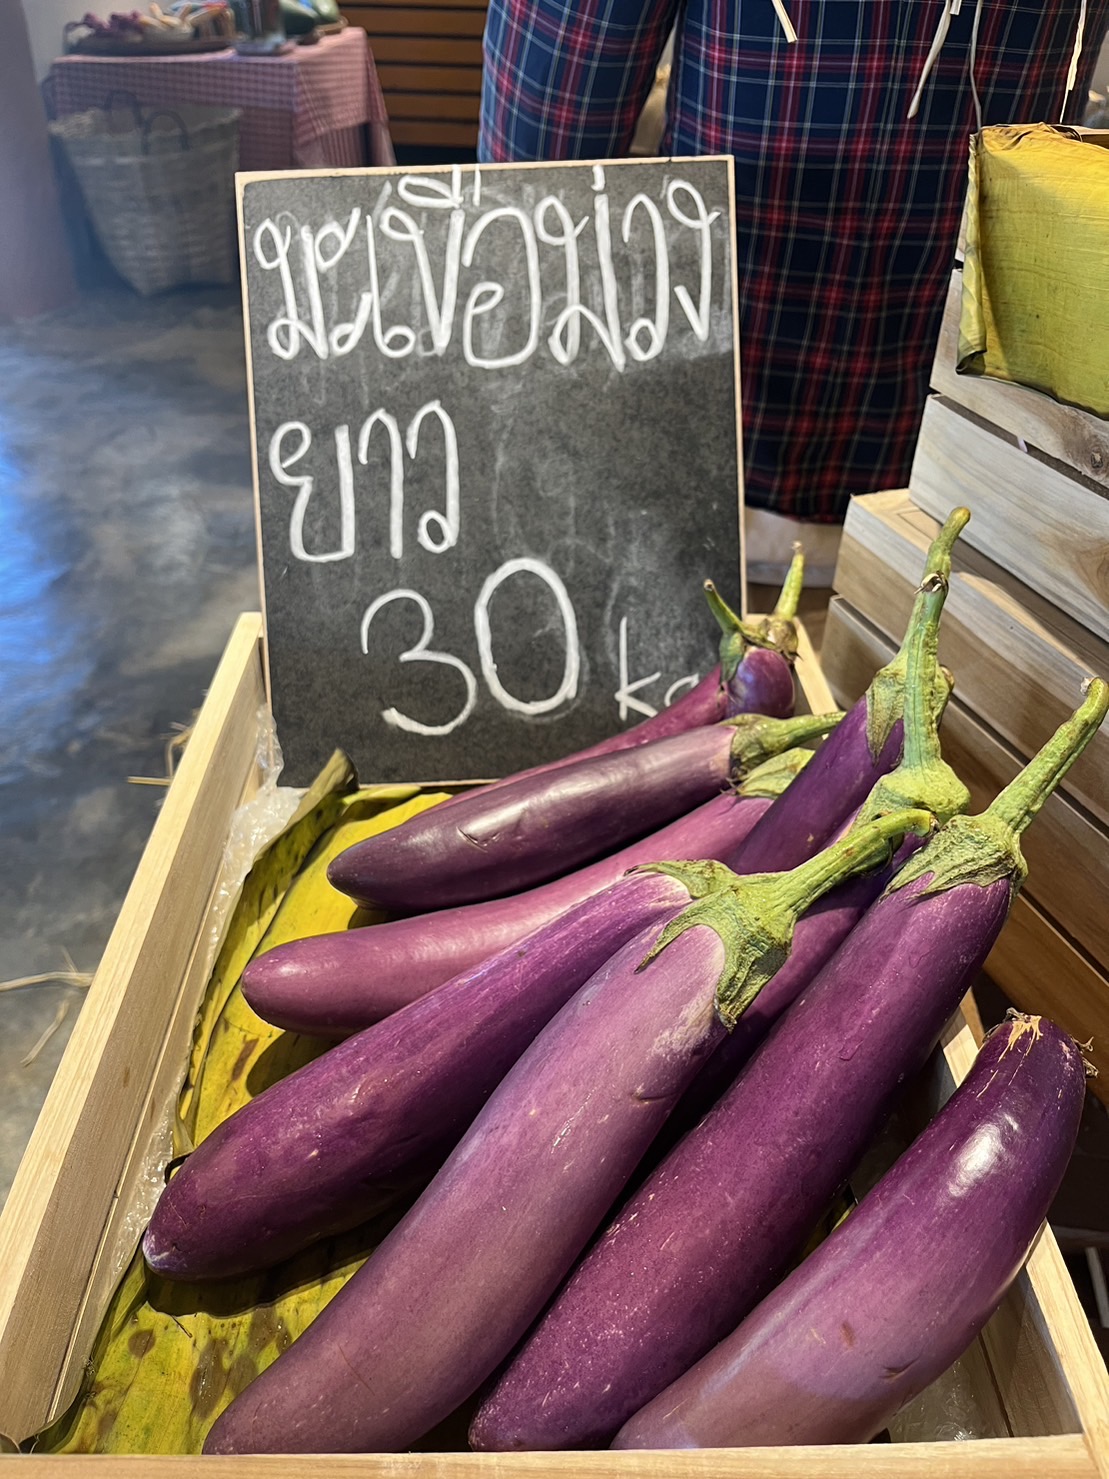 มะเขือม่วง
ยาว
30 kg